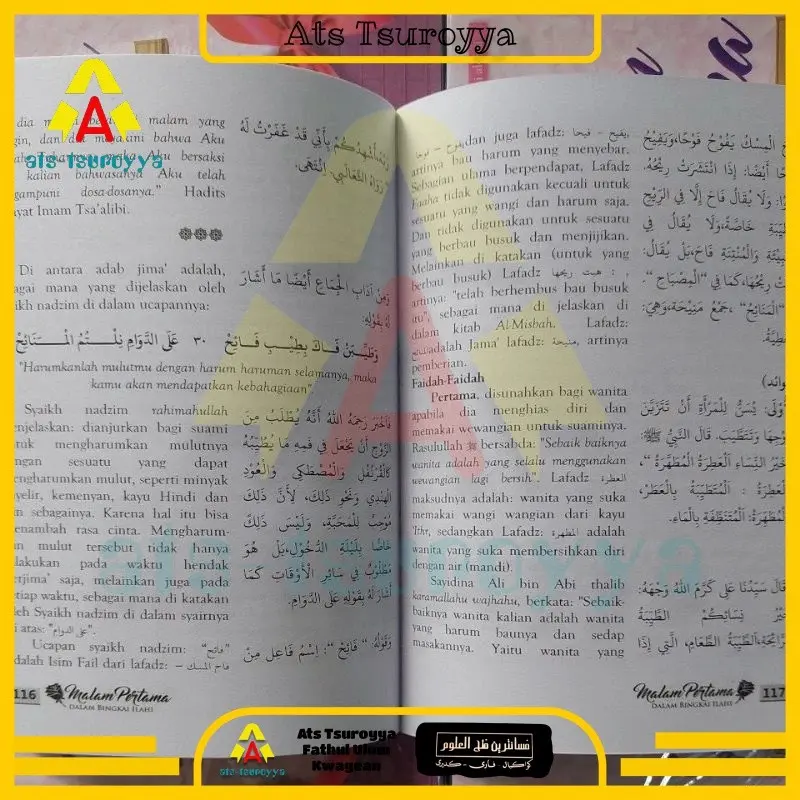 Ats Tsuroyya
A
ats-tsuroyya
malam yang
dan
bahwa Aku
Aku bersaksi
kalian bahwasanya Aku telah
dosa-dosanya." Hadits
Imam Tsa'alibi.
قَدْ غَفَرْتُ لَهُ
رَوَاهُ الثَّعَالَبِيُّ. اِنْتَهَى.
Di antara adab jima' adalah,
mana yang dijelaskan oleh
nadzim di dalam ucapannya:
وَمِنْ آدَابِ الْجِمَاعِ أَيْضًا مَا أَشَارَ
لَهُ بِقَوْلِهِ:
وَطَيِّبَنْ فَاكَ بِطِيْبٍ فَائِحْ ٣٠ عَلَى الدَّوَامِ نِلْتُمُ الْمَنَائِحْ
"Harumkanlah mulutmu dengan harum haruman selamanya, maka
kamu akan mendapatkan kebahagiaan"
Syaikh nadzim rahimahullah
dianjurkan bagi suami
mengharumkan mulutnya
sesuatu yang dapat
mulut, seperti minyak
kemenyan, kayu Hindi dan
sebagainya. Karena hal itu bisa
rasa cinta. Mengharum-
mulut tersebut tidak hanya
pada waktu hendak
saja, melainkan juga pada
waktu, sebagai mana di katakan
Syaikh nadzim di dalam syairnya
atas: "على الدوام".
Ucapan syaikh nadzim: "فائح"
Isim Fail dari lafadz: فاح المسك –
فَأَخْبَرَ رَحِمَهُ اللهُ أَنَّهُ يُطْلَبُ مِنَ
الزَّوْجِ أَنْ يَجْعَلَ فِي فَمِهِ مَا يُطَيِّبُهُ
كَالْقَرَنْفُلِ وَالْمُصْطَكَى وَالْعُوْدِ
الْهِنْدِي وَنَحْوِ ذَلِكَ، لِأَنَّ ذَلِكَ
مُوْجِبٌ لِلْمَحَبَّةِ، وَلَيْسَ ذَلِكَ
خَاصًّا بِلَيْلَةِ الدُّخُوْلِ، بَلْ هُوَ
مَطْلُوْبٌ فِي سَائِرِ الْأَوْقَاتِ كَمَا
أَشَارَ لَهُ بِقَوْلِهِ عَلَى الدَّوَامِ.
وَقَوْلُهُ: "فَائِحْ": اِسْمُ فَاعِلٍ مِنْ
116 Malam Pertama
DALAM BINGKAI ILAHI
dan juga lafadz: يفيح - فيحا,
artinya bau harum yang menyebar.
Sebagian ulama berpendapat, Lafadz
Faaha tidak digunakan kecuali untuk
sesuatu yang wangi dan harum saja.
Dan tidak digunakan untuk sesuatu
yang berbau busuk dan menjijikan.
Melainkan di katakan (untuk yang
berbau busuk) Lafadz : هبت ريحها,
artinya: "telah berhembus bau busuk
itu"; sebagai mana di jelaskan di
dalam kitab Al-Misbah. Lafadz:
adalah Jama' lafadz: منيحة, artinya
pemberian.
Faidah-Faidah
Pertama, disunahkan bagi wanita
apabila dia menghias diri dan
memakai wewangian untuk suaminya.
Rasulullah ﷺ bersabda: "Sebaik baiknya
wanita adalah yang selalu menggunakan
wewangian lagi bersih". Lafadz العطرة
maksudnya adalah: wanita yang suka
memakai wangi wangian dari kayu
'Itr, sedangkan Lafadz: المطهرة adalah
wanita yang suka membersihkan diri
dengan air (mandi).
Sayidina Ali bin Abi thalib
karamallahu wajhahu, berkata: "Sebaik-
baiknya wanita kalian adalah wanita
yang harum baunya dan sedap
masakannya. Yaitu wanita yang
الْمِسْكُ يَفُوْحُ فَوْحًا، وَيَفِيْحُ
أَيْضًا: إِذَا انْتَشَرَتْ رِيْحُهُ.
وَلَا يُقَالُ فَاحَ إِلَّا فِي الرِّيْحِ
خَاصَّةً، وَلَا يُقَالُ فِي
وَالْمُنْتِنَةِ فَاحَ، بَلْ يُقَالُ:
رِيْحُهَا، كَمَا فِي "الْمِصْبَاحِ".
"الْمَنَائِحُ"، جَمْعُ مَنِيْحَةٍ، وَهِيَ:
يُسَنُّ لِلْمَرْأَةِ أَنْ تَتَزَيَّنَ
لِزَوْجِهَا وَتَتَطَيَّبَ. قَالَ النَّبِيُّ ﷺ:
خَيْرُ النِّسَاءِ الْعَطِرَةُ الْمُطَهَّرَةُ"،
الْعَطِرَةُ: الْمُتَطَيِّبَةُ بِالْعِطْرِ،
الْمُطَهَّرَةُ: الْمُتَنَظِّفَةُ بِالْمَاءِ.
قَالَ سَيِّدُنَا عَلِيٌّ كَرَّمَ اللهُ وَجْهَهُ:
خَيْرُ نِسَائِكُمْ الطَّيِّبَةُ
الرَّائِحَةِ، الطَّيِّبَةُ الطَّعَامِ، الَّتِي إِذَا
Malam Pertama 117
DALAM BINGKAI ILAHI
Ats Tsuroyya
A
ats-tsuroyya
Ats Tsuroyya
Fathul Ulum
Kwagean
فسانترين فتح العلوم
كواكيان - فاري - كديري